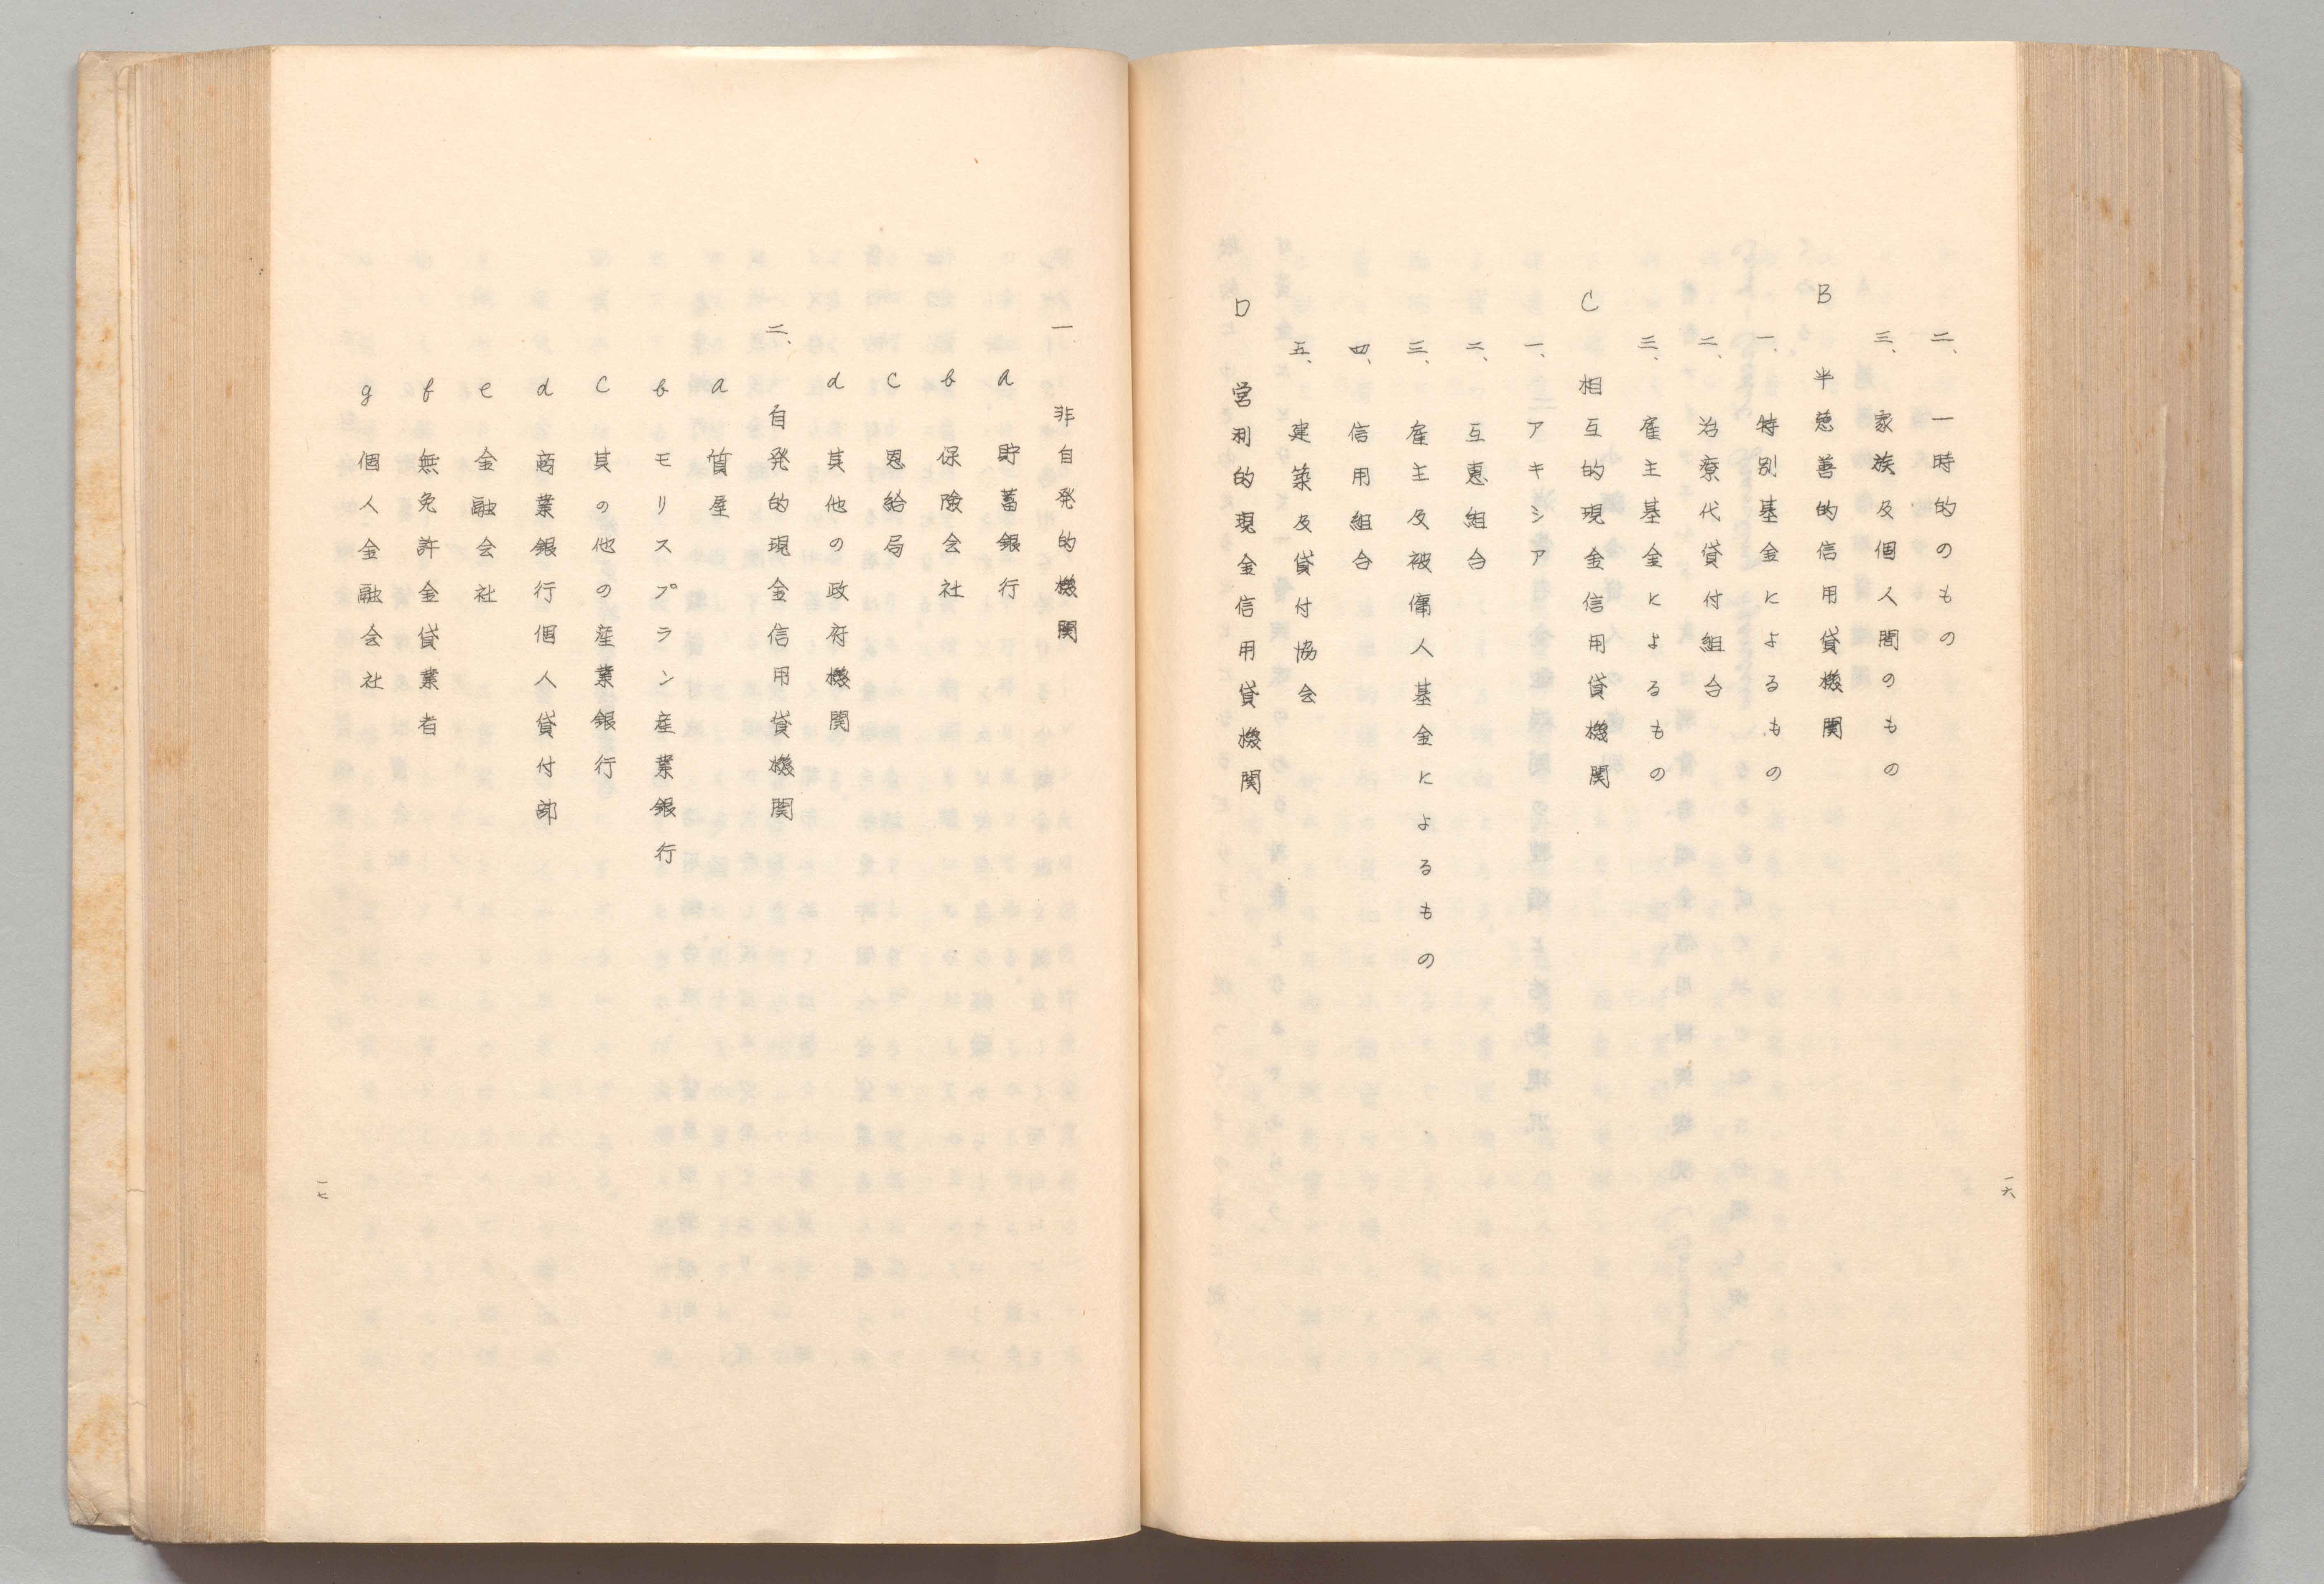 二、一時的のもの
三、家族及個人間のもの
B 半慈善的信用貸機関
一、特別基金によるもの
二、治療代貸付組合
三、雇主基金によるもの
C 相互的現金信用貸機関
一、アキシア
二、互惠組合
三、雇主及被傭人基金によるもの
四、信用組合
五、建築及貸付協会
D 営利的現金信用貸機関
一六
一 非自発的機関
a 貯蓄銀行
b 保険会社
C 恩給局
d 其他の政府機関
二、自発的現金信用貸機関
a 質屋
b モリスプラン産業銀行
C 其の他の産業銀行
d 商業銀行個人貸付部
e 金融会社
f 無免許金貸業者
g 個人金融会社
一七